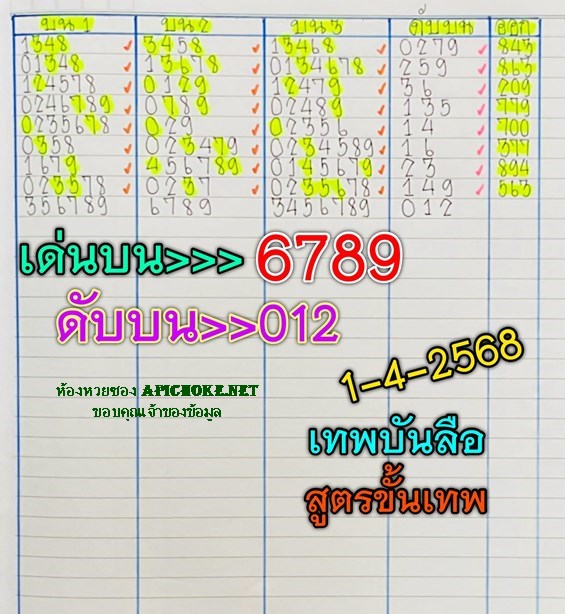 บน1 บน2 บน3 ดับบน ออก
1348 3458 13468 0279 843
01348 13678 0134678 259 863
124578 0129 12479 36 209
0246789 0789 02489 135 779
0235678 029 02356 14 700
0358 023479 0234589 16 377
1679 456789 0145679 23 894
023578 0237 0235678 149 563
356789 6789 3456789 012
เด่นบน>>> 6789
ดับบน>>012
1-4-2568
ห้องหวยซอง APICHOKE.NET
ขอบคุณเจ้าของข้อมูล
เทพบันลือ
สูตรขั้นเทพ